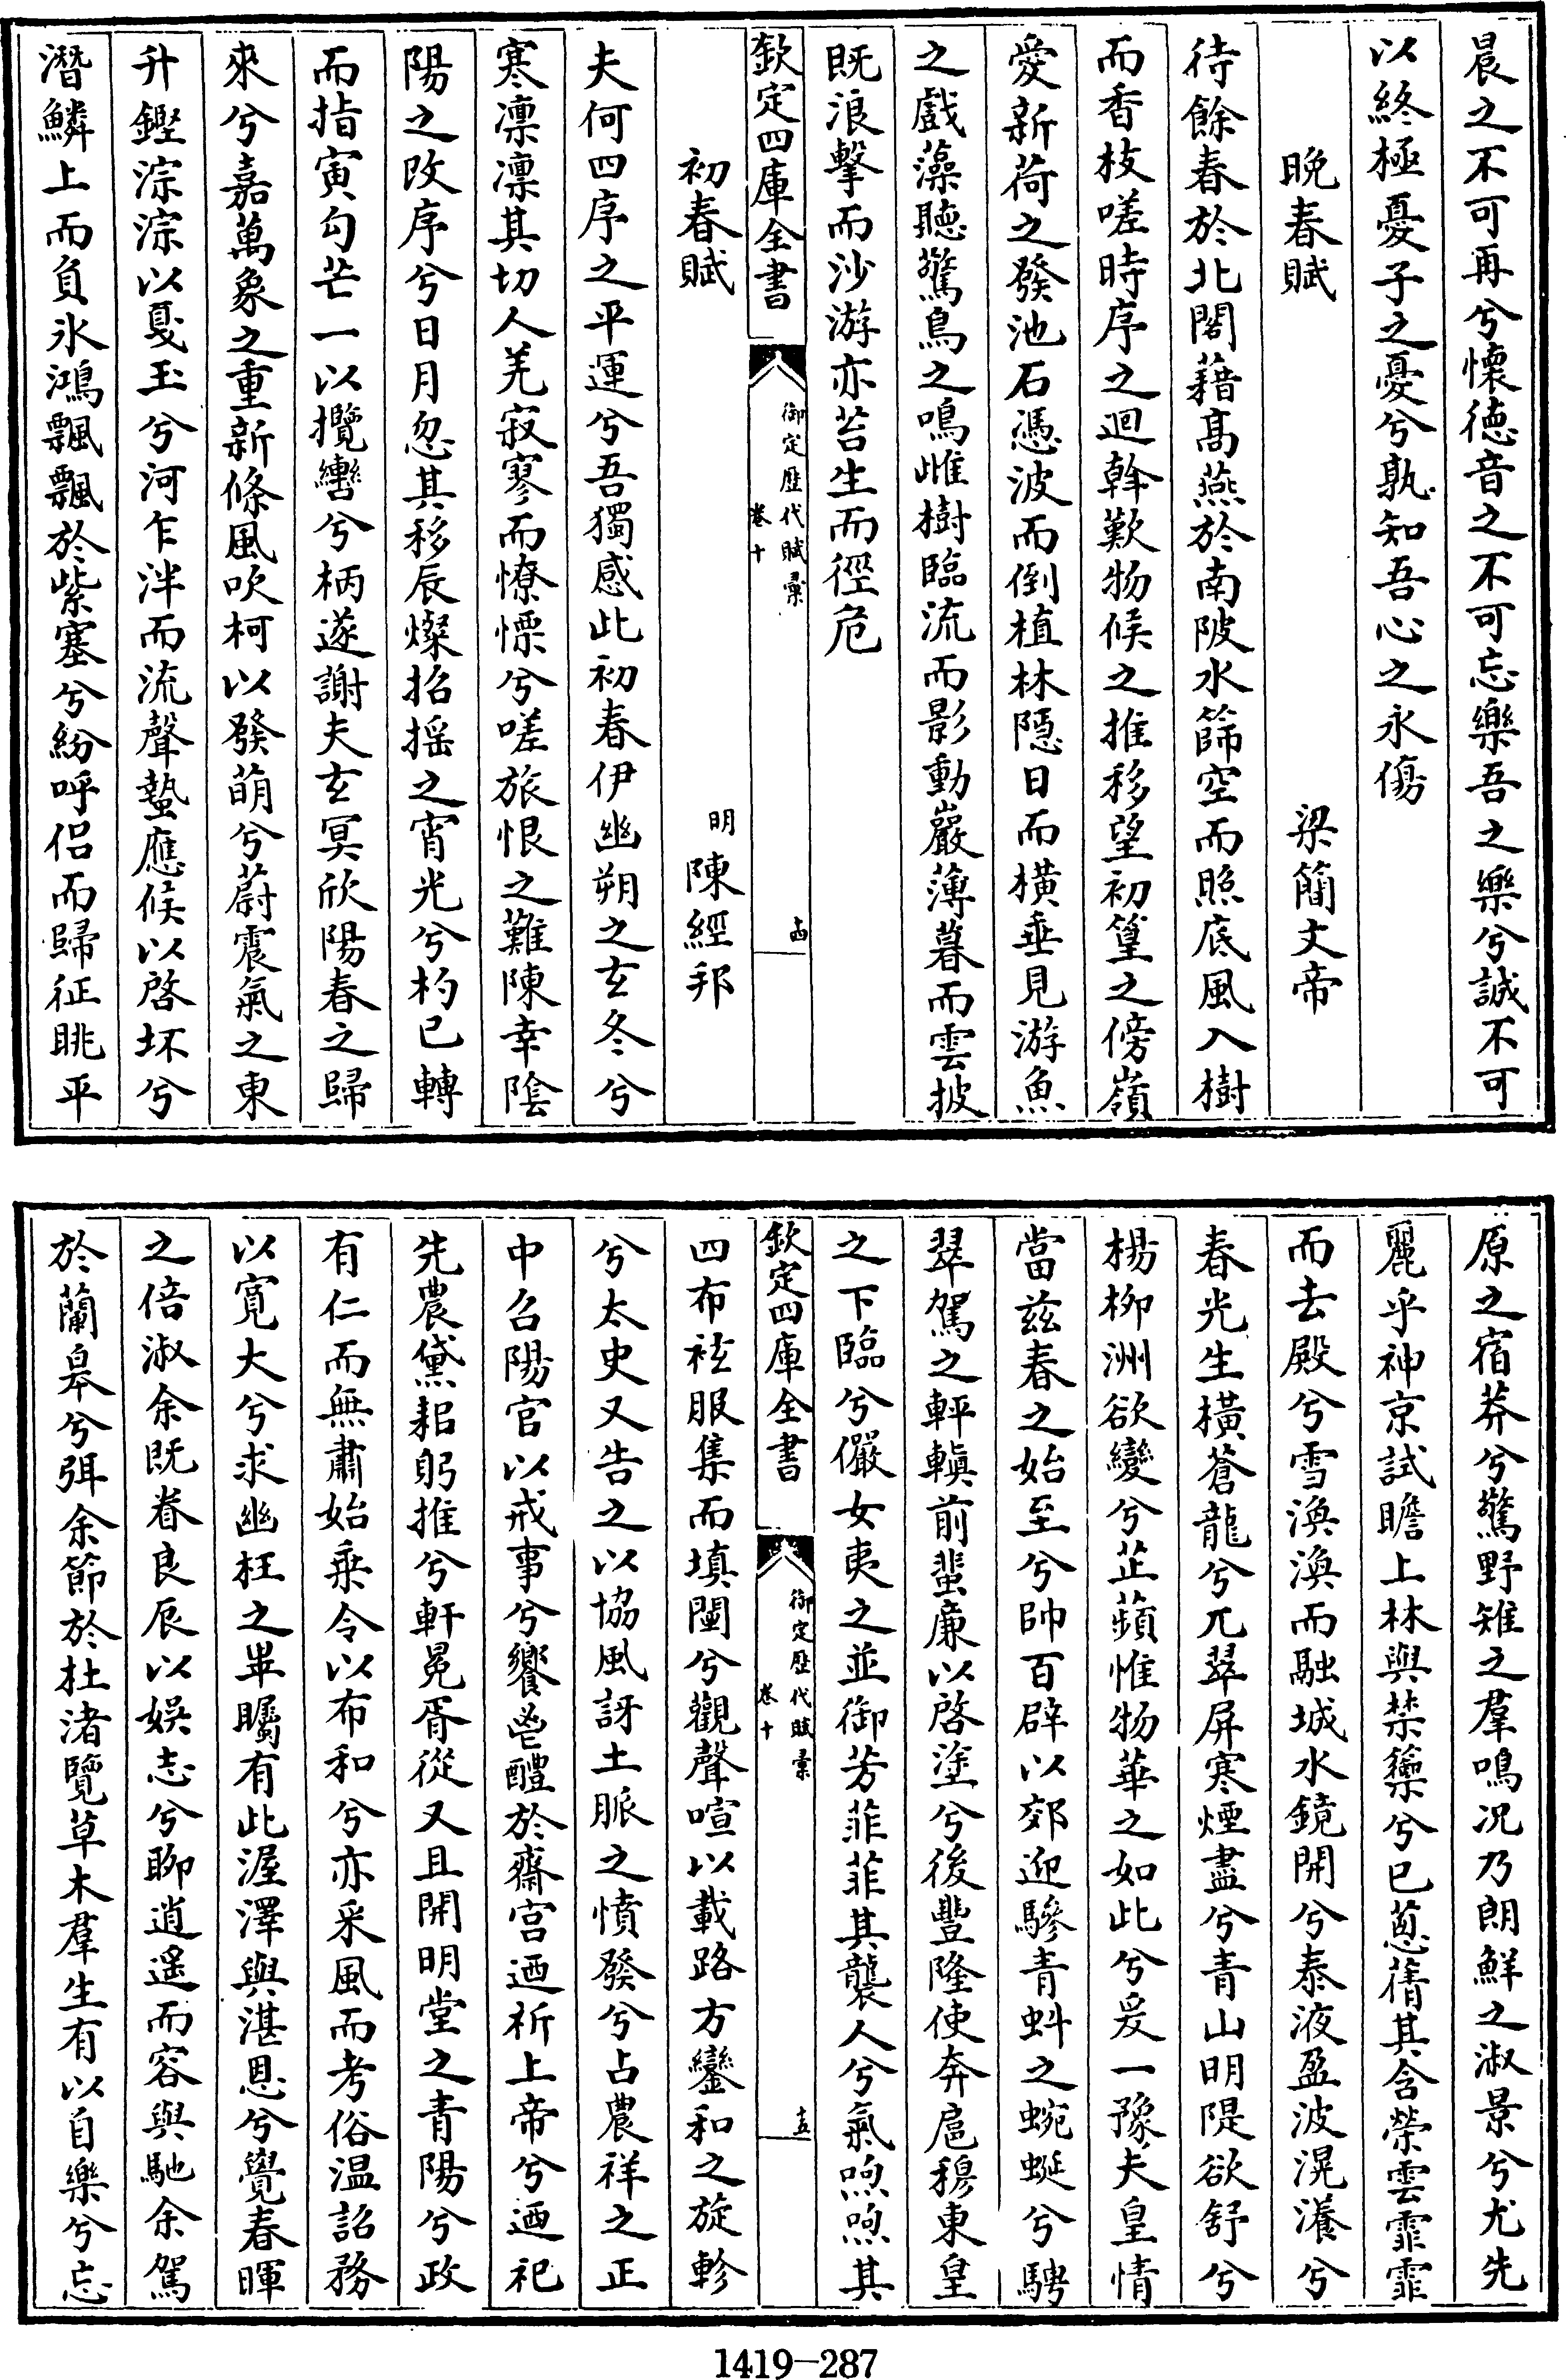 晨之不可再兮懷德音之不可忘樂吾之樂兮誠不可
以終極憂子之憂兮孰知吾心之永傷
晚春賦 梁簡文帝
待餘春於北閣藉高燕於南陂水篩空而照底風入樹
而香枝嗟時序之迴斡歎物候之推移望初篁之傍嶺
愛新荷之發池石憑波而倒植林隱日而橫垂見游魚
之戲藻聽驚鳥之鳴雌樹臨流而影動巖薄暮而雲披
既浪擊而沙游亦苔生而徑危
欽定四庫全書 御定歷代賦彙 卷十 十四
初春賦 明陳經邦
夫何四序之平運兮吾獨感此初春伊幽朔之玄冬兮
寒凛凛其切人羌寂寥而憭慄兮嗟旅恨之難陳幸陰
陽之改序兮日月忽其移辰燦招摇之宵光兮杓已轉
而指寅勾芒一以攬轡兮柄遂謝夫玄冥欣陽春之歸
來兮嘉萬象之重新條風吹柯以發萌兮蔚震氣之東
升鏗淙淙以戛玉兮河乍泮而流聲蟄應候以啓坏兮
潛鱗上而負氷鴻飄飄於紫塞兮紛呼侣而歸征眺平
原之宿莽兮驚野雉之羣鳴况乃朗鮮之淑景兮尤先
麗乎神京試瞻上林與禁籞兮已蔥蒨其含榮雲霏霏
而去殿兮雪渙渙而融城水鏡開兮泰液盈波滉瀁兮
春光生橫蒼龍兮兀翠屏寒煙盡兮青山明隄欲舒兮
楊柳洲欲變兮芷蘋惟物華之如此兮爰一豫夫皇情
當兹春之始至兮帥百辟以郊迎驂青虯之蜿蜒兮騁
翠駕之軯輷前蜚廉以啓塗兮後豐隆使奔扈穆東皇
之下臨兮儼女夷之並御芳菲菲其襲人兮氣喣喣其
欽定四庫全書 御定歷代賦彙 卷十 十五
四布袨服集而填闉兮觀聲喧以載路方鑾和之旋軫
兮太史又告之以協風訝土脈之憤發兮占農祥之正
中召陽官以戒事兮饗鬯醴於齋宫迺祈上帝兮迺祀
先農黛耜躬推兮軒冕胥從又且開明堂之青陽兮政
有仁而無肅始乗令以布和兮亦采風而考俗温詔務
以寛大兮求幽枉之畢矚有此渥澤與湛恩兮覺春暉
之倍淑余既眷良辰以娱志兮聊逍遥而容與馳余駕
於蘭皋兮弭余節於杜渚覽草木羣生有以自樂兮忘
1419-287